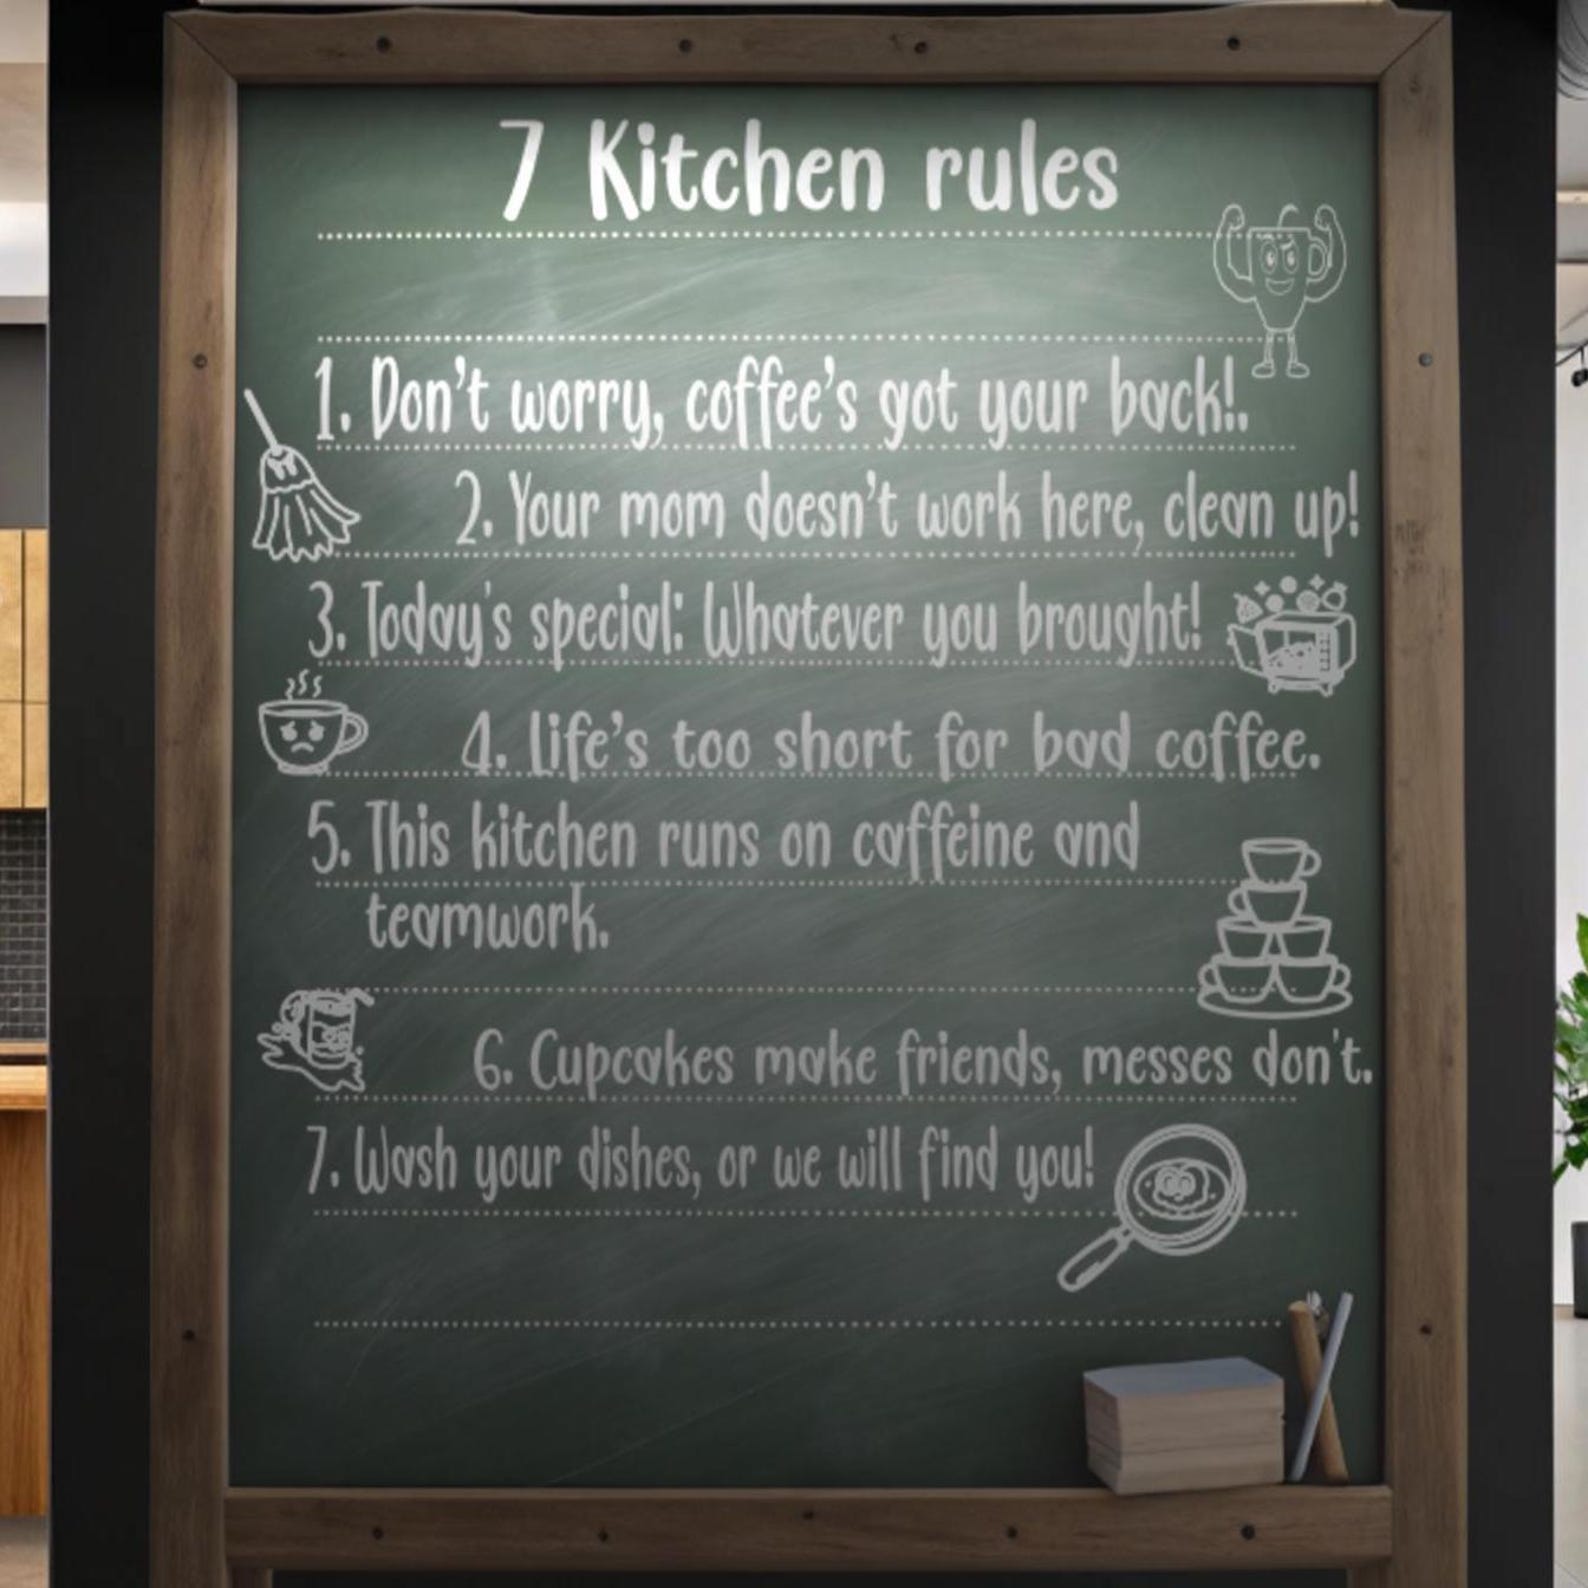 7 Kitchen rules
1. Don't worry, coffee's got your back!.
2. Your mom doesn't work here, clean up!
3. Today's special: Whatever you brought!
4. Life's too short for bad coffee.
5. This kitchen runs on caffeine and
teamwork.
6. Cupcakes make friends, messes don't.
7. Wash your dishes, or we will find you!